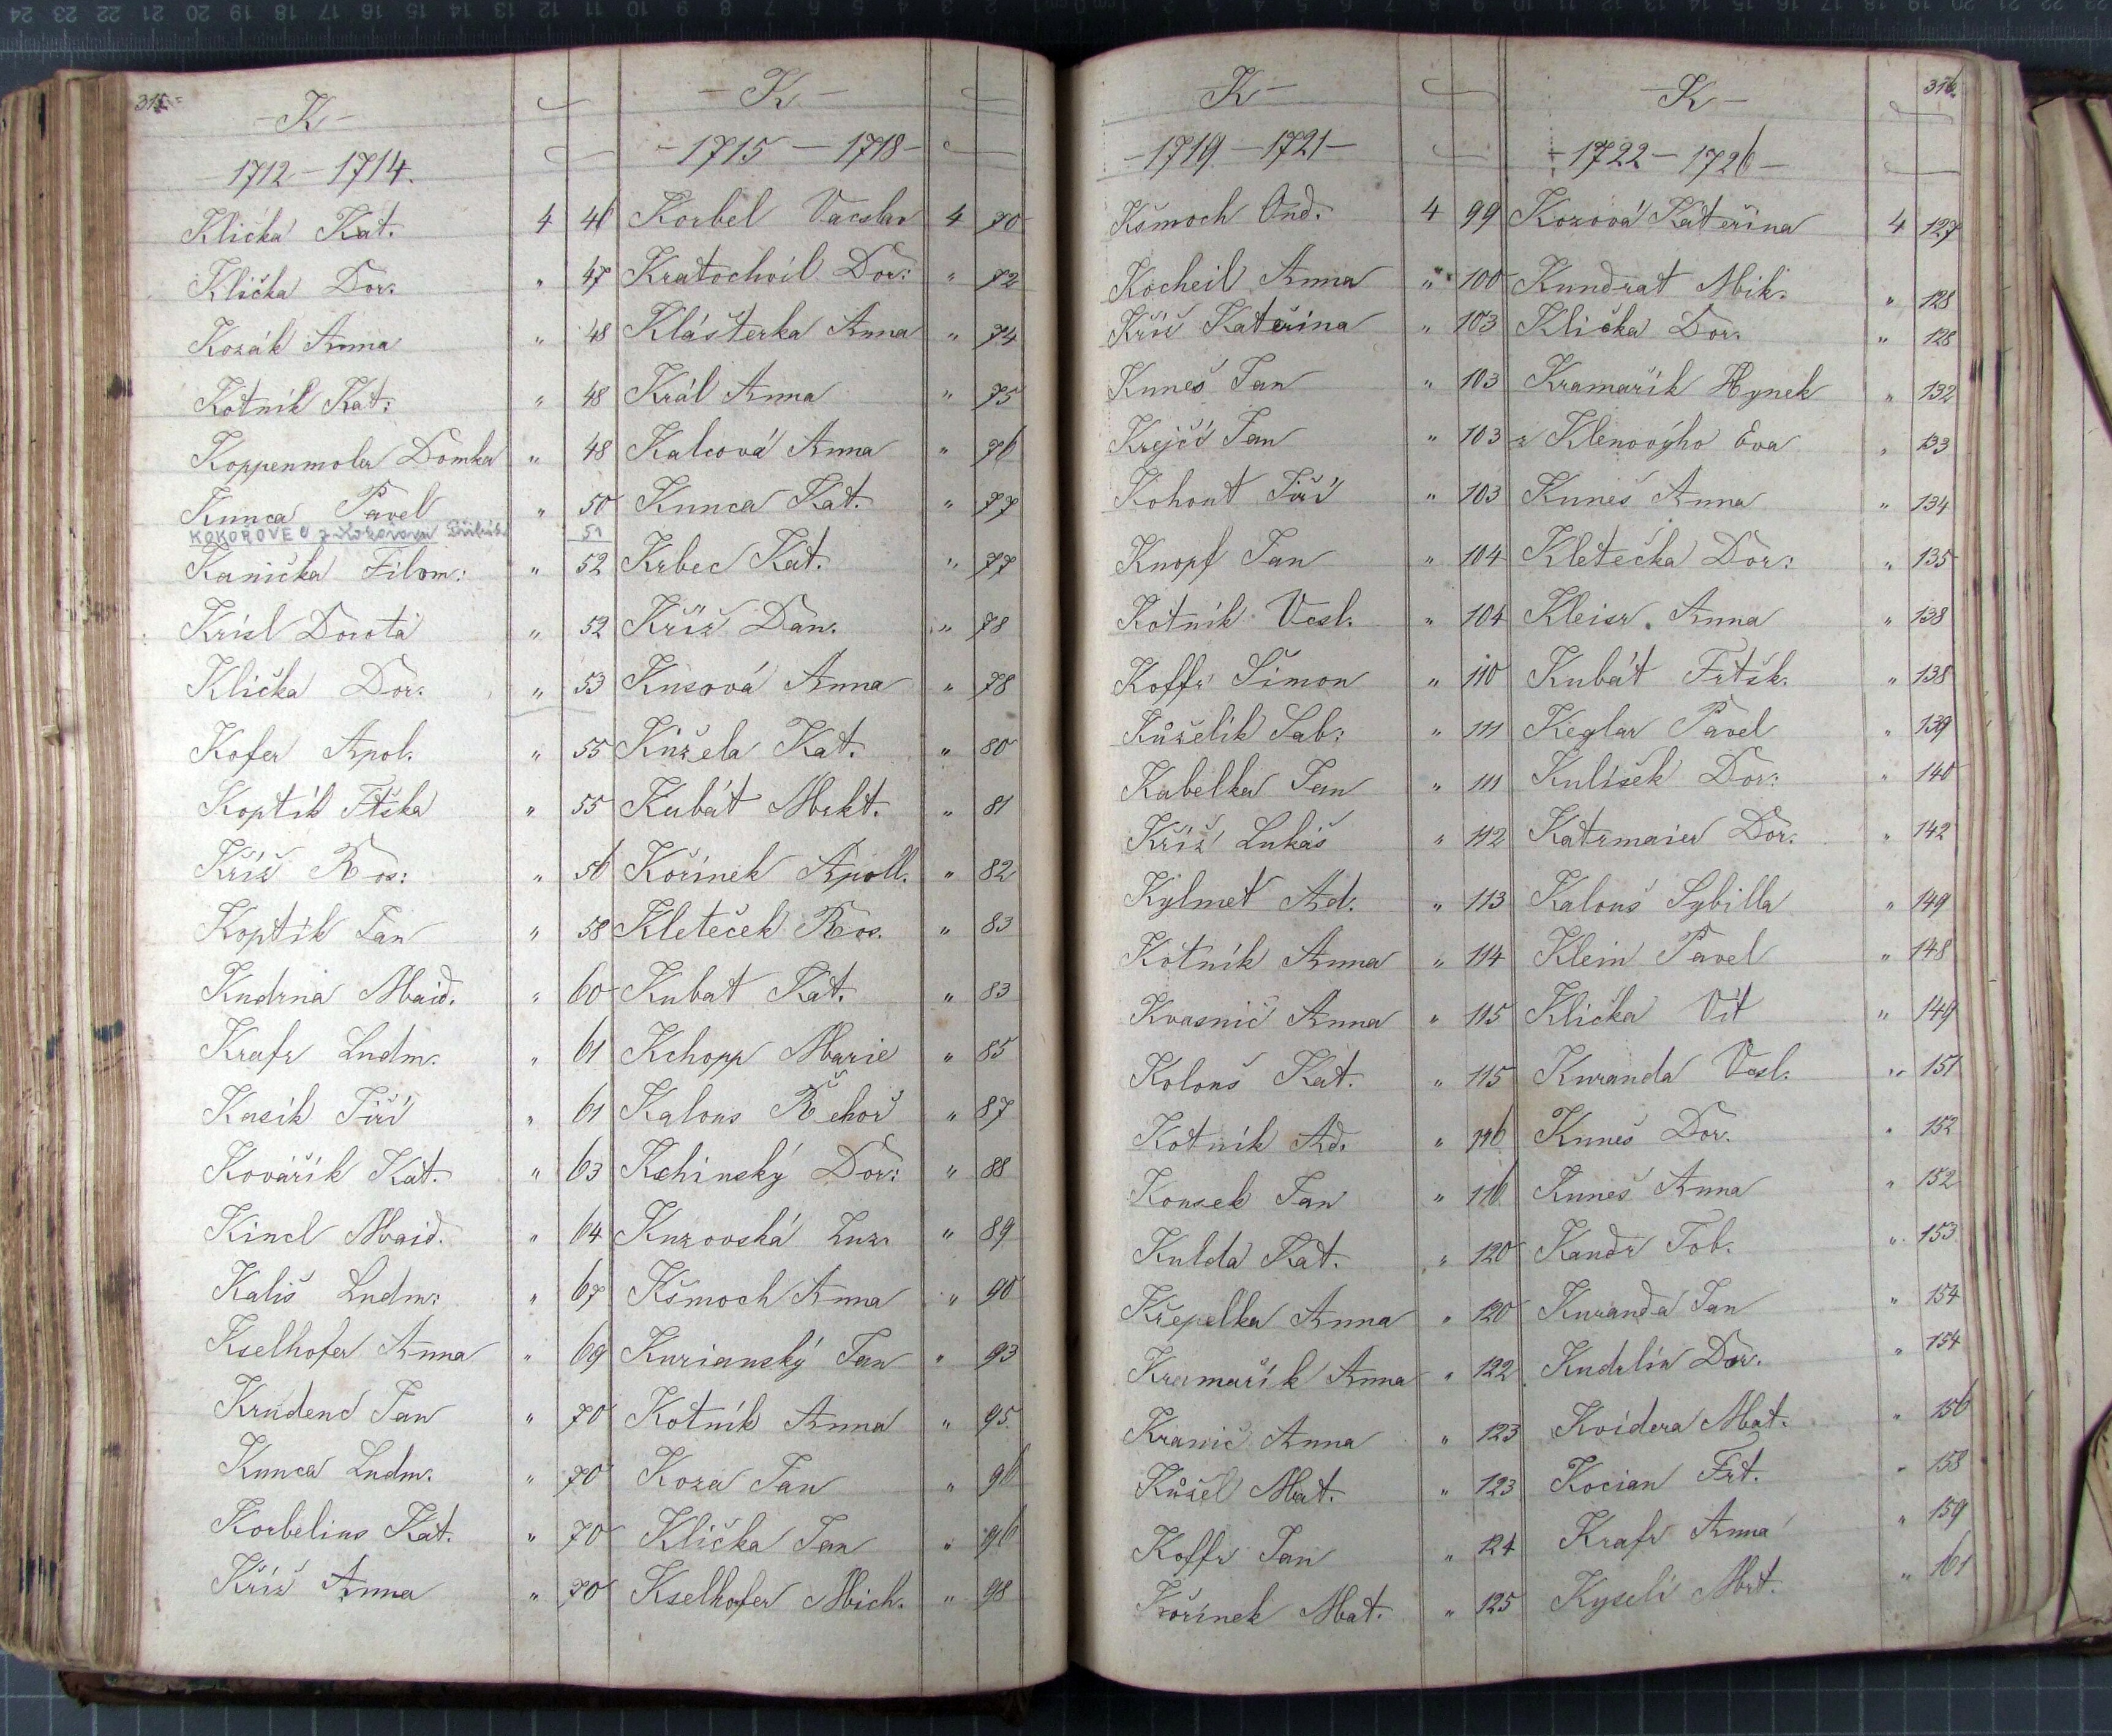 315
- K -
1712 - 1714.
Klička Kat. 4 46
Klička Dor. " 47
Kozák Anna " 48
Kotnik Kat: " 48
Koppenmoler Domka " 48
Kunca Pavel " 50
KOKOŘOVE 51
Kanička Filom: " 52
Krisl Dorota " 52
Klička Dor. " 53
Kofer Apol. " 55
Koptik Ftška " 55
Kříž Ros: " 56
Koptik Jan " 58
Kudrna Maid. " 60
Krafr Ludm. " 61
Kasik Jiří " 61
Kovářik Kat. " 63
Kincl Maid. " 64
Kališ Ludm: " 67
Kselhofer Anna " 69
Krudenc Jan " 70
Kunca Ludm. " 70
Korbelius Kat. " 70
Kříž Anna " 70
- K -
- 1715 - 1718 -
Korbel Vacslav 4 70
Kratochvil Dor: " 72
Klášterka Anna " 74
Král Anna " 75
Kalcová Anna " 76
Kunca Kat. " 77
Krbec Kat. " 77
Kříž Dan. " 78
Kusová Anna " 78
Kužela Kat. " 80
Kubát Mrkt. " 81
Kořinek Apoll. " 82
Kleteček Ros. " 83
Kubat Kat. " 83
Kchopp Marie " 85
Kalous Řehoř " 87
Kchinský Dor: " 88
Kuzovská Luz. " 89
Kšmoch Anna " 90
Kurianský Jan " 93
Kotnik Anna " 95
Koza Jan " 96
Klička Jan " 96
Kselhofer Mich. " 98
K -
- 1719 - 1721 -
Kšmoch Ond. 4 99
Kocheil Anna " 100
Kříž Kateřina " 103
Kuneš Jan " 103
Krejčí Jan " 103
Kohout Jiří " 103
Knopf Jan " 104
Kotnik Vcsl. " 104
Koffr Šimon " 110
Kůželik Sab: " 111
Kabelka Jan " 111
Kříž Lukáš " 112
Kylmet Ad. " 113
Kotnik Anna " 114
Kvasnič Anna " 115
Kolouš Kat. " 115
Kotnik Ad. " 116
Kousek Jan " 116
Kulda Kat. " 120
Křepelka Anna " 120
Kramařik Anna " 122
Kranič Anna " 123
Kůžel Mat. " 123
Koffr Jan " 124
Kořinek Mat. " 125
316.
- K -
- 1722 - 1726 -
Kozová Kateřina 4 127
Kundrat Mik. " 128
Klička Dor. " 128
Kramařik Hynek " 132
z Klenovýho Eva " 133
Kuneš Anna " 134
Kletečka Dor: " 135
Kleisr. Anna " 138
Kubát Frtšk. " 138
Keglar Pavel " 139
Kulišek Dor: " 140
Katrmaier Dor. " 142
Kalouš Sybilla " 149
Klein Pavel " 148
Klička Vít " 149
Kuranda Vcsl. " 151
Kuneš Dor. " 152
Kuneš Anna " 152
Kandr Tob. " 153
Kuranda Jan " 154
Kudrlin Dor. " 154
Kvidera Mat. " 156
Kocian Frt. " 158
Krafr Anna " 159
Kyseli Mrt. " 161